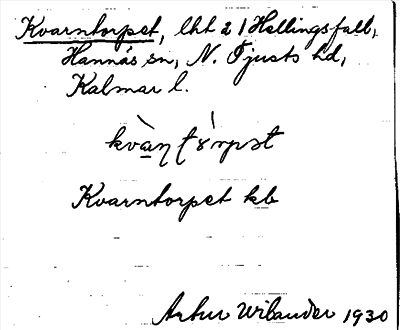 Kvarntorpet, lht 2 / Hellingsfall,
Hannäs sn, N. Tjusts hd,
Kalmar l.
Kvarntorpet kb
Artur Wilander 1930